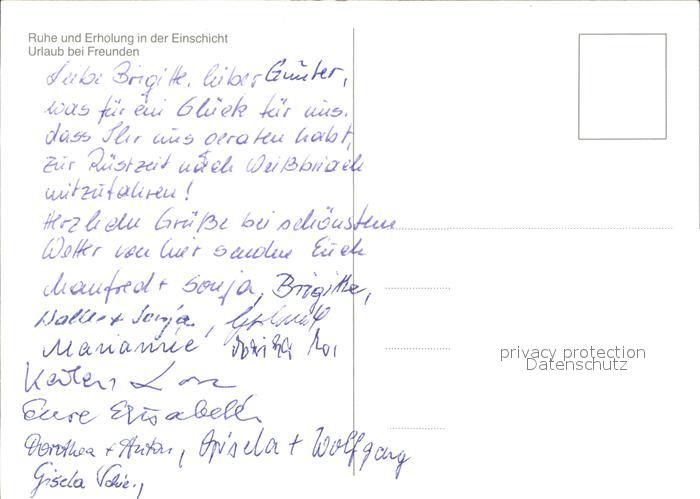 Ruhe und Erholung in der Einschicht
Urlaub bei Freunden
Liebe Brigitte, lieber Günter,
was für ein Glück für uns,
dass Ihr uns geraten habt,
zur Rüstzeit nach Weißbriach
mitzufahren!
Herzliche Grüße bei schönstem
Wetter von hier senden Euch
Manfred + Sonja, Brigitte,
+ Sonja,
Marianne
Eure Elisabeth
Dorothea + Anton, Gisela + Wolfgang
Gisela
privacy protection
Datenschutz